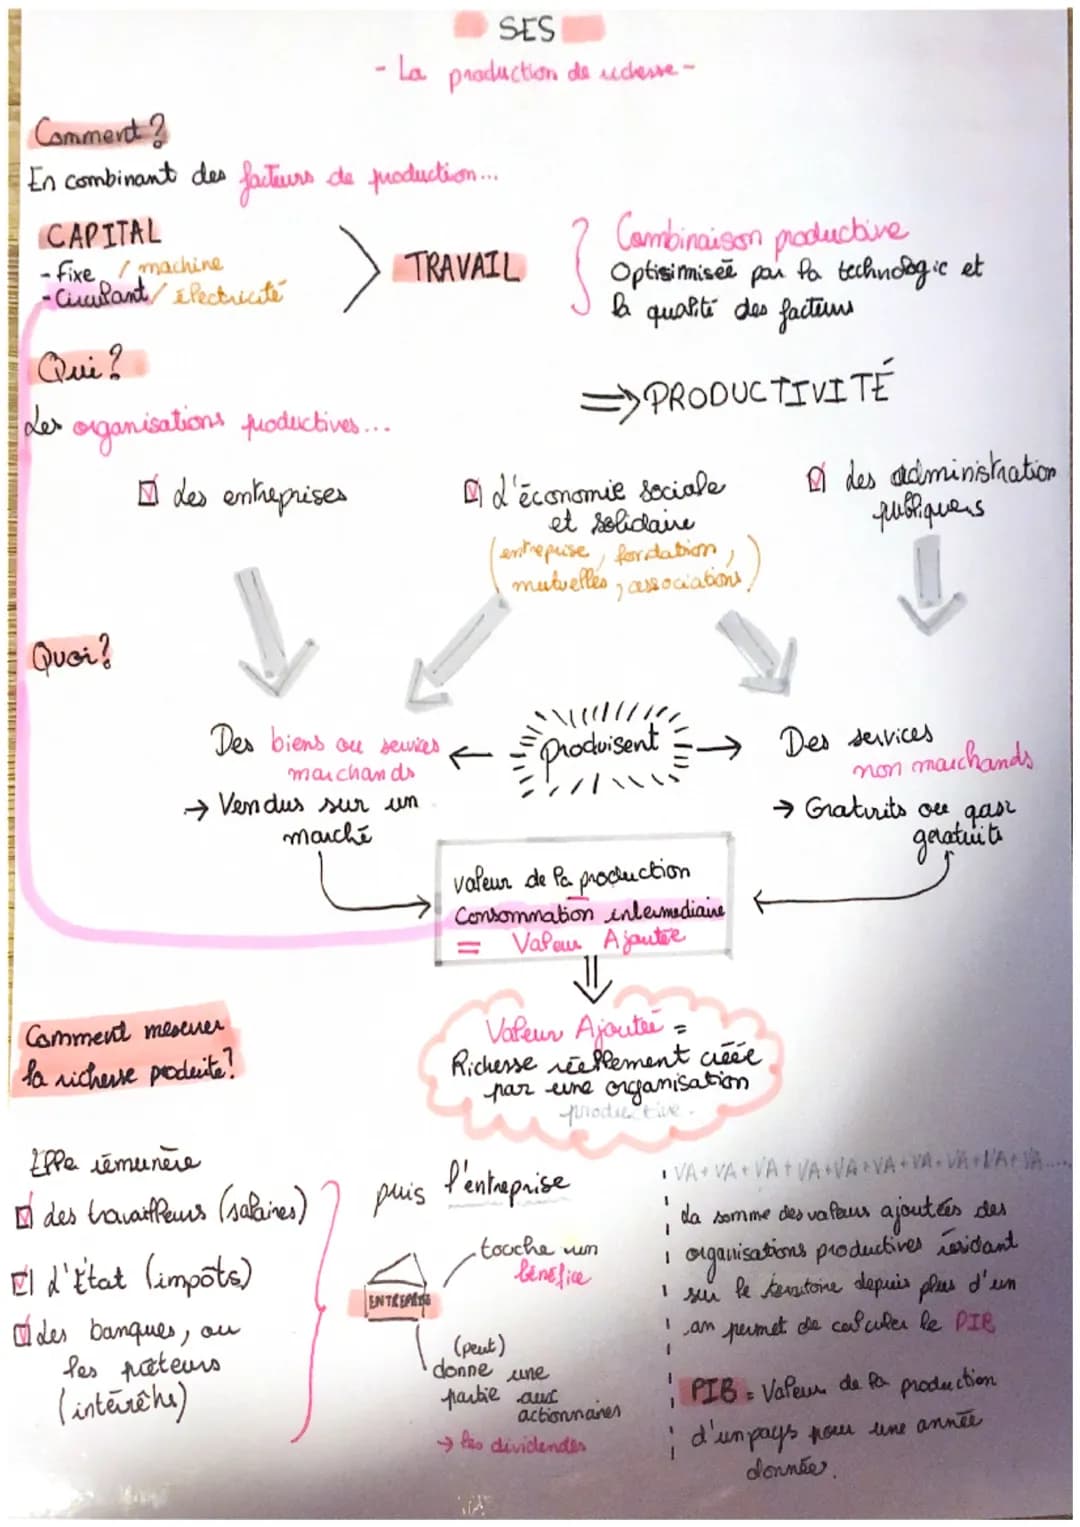 SES
- La production de richesse -
Comment ?
En combinant des facteurs de production...
CAPITAL
- Fixe / machine
- Circulant / électricité
TRAVAIL
Combinaison productive
Optisimiseé par la technologie et
la qualité des facteurs
Qui ?
Les organisations productives...
=> PRODUCTIVITÉ
des entreprises
L'économie sociale
et solidaire
(entreprise, fondation,
mutuelles, associations)
des administration
publiquers
Quoi ?
Des biens ou services
marchands
→ Vendus sur un
marché
produisent
Des services
non marchands
→ Gratuits ou
geratuite
valeur de la production
-
Consommation intermediaire
= Valeur Ajoutée
Valeur Ajoutée =
Richesse réellement créée
par une organisation
productive.
Comment mesurer
la richesse produite ?
Elle rémunère
des travailleurs (salaires)
L'État (impôts)
des banques, ou
les prêteurs
(intérêhs)
puis l'entreprise
touche un
bénéfice
ENTREPRISE
(peut)
donne une
partie aux
actionnaires
→ les dividendes
VA + VA + VA + VA + VA + VA + VA + VA + VA + VA....
La somme des valeurs ajoutées des
organisations productives résidant
sur le territoire depuis plus d'un
an permet de calculer le PIB
PIB = Valeur de la production
d'un pays pour une année
donnée.